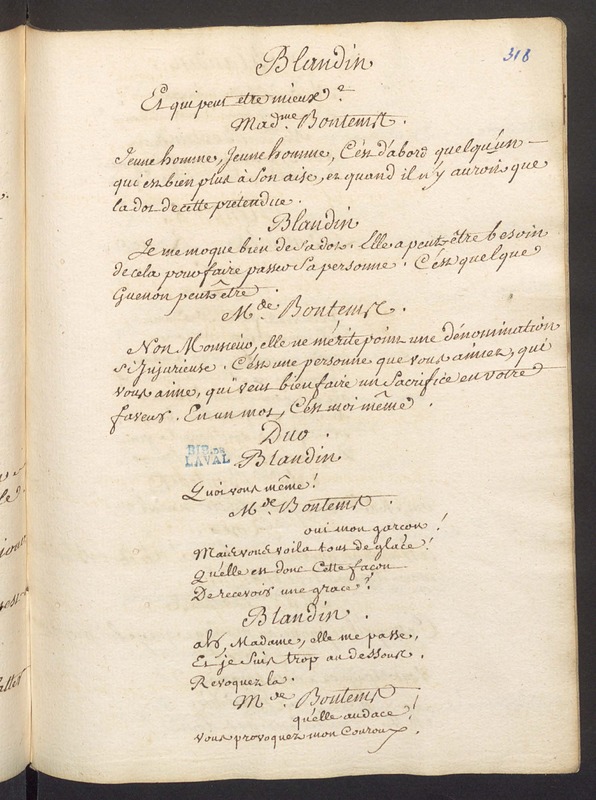 318
Blandin
Et qui peut etre mieux ?
Mad.me Bontemst.
Jeune homme, Jeune homme, C'est d'abord quelqu'un
qui est bien plus à Son aise, et quand il n'y auroit que
la dot de cette pretendue.
Blandin
Je me moque bien de Sa dot. Elle a peut-être besoin
de cela pour faire passer Sa personne. C'est quelque
Guenon peut-être.
M.de Bontemst.
Non Monsieur, elle ne mérite point une dénomination
Si Injurieuse. C'est une personne que vous aimez, qui
vous aime, qui veut bien faire un Sacrifice en votre
faveur. En un mot, C'est moi même.
Duo.
BIB. DE
LAVAL
Blandin
Quoi vous même !
M.de Bontemst.
oui mon garcon !
Mais vous voila tout de glace !
Qu'elle est donc Cette façon
De recevoir une grace ?
Blandin.
ah, Madame, elle me passe,
Et je Suis trop au dessous.
Revoquez la.
M.de Bontemst
qu'elle audace !
vous provoquez mon Couroux.